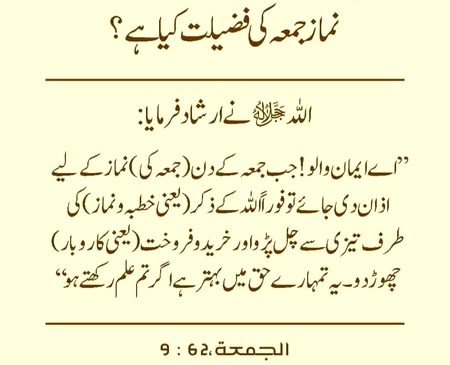 نماز جمعہ کی فضیلت کیا ہے؟
اللہ جل جلالہ نے ارشاد فرمایا:
”اے ایمان والو! جب جمعہ کے دن (جمعہ کی) نماز کے لیے
اذان دی جائے تو فوراً اللہ کے ذکر (یعنی خطبہ و نماز) کی
طرف تیزی سے چل پڑو اور خرید و فروخت (یعنی کاروبار)
چھوڑ دو۔ یہ تمہارے حق میں بہتر ہے اگر تم علم رکھتے ہو“
الجمعة، 62 : 9